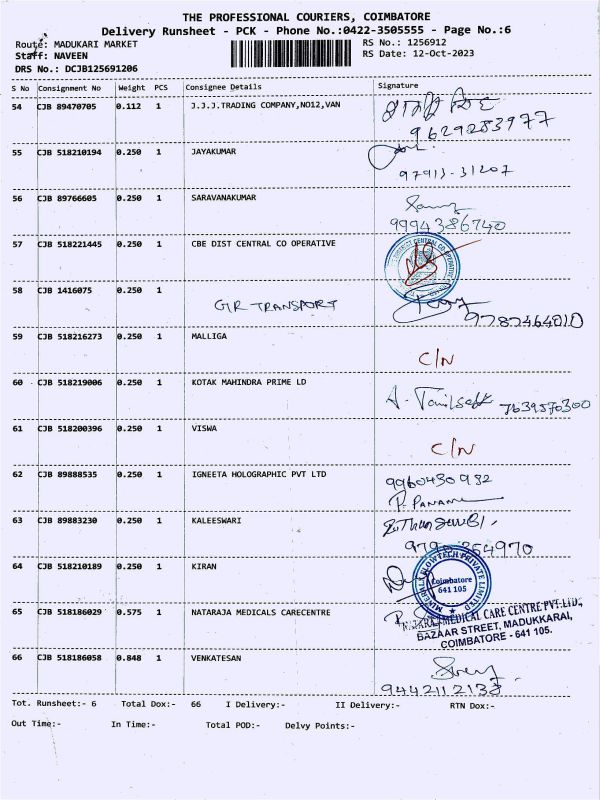 THE PROFESSIONAL COURIERS, COIMBATORE
Delivery Runsheet - PCK - Phone No.:0422-3505555 - Page No.:6
Route: MADUKARI MARKET
RS No.: 1256912
Staff: NAVEEN
RS Date: 12-Oct-2023
DRS No.: DCJB125691206
S No Consignment No Weight PCS Consignee Details Signature
54 CJB 89470705 0.112 1 J.J.J.TRADING COMPANY,NO12,VAN
9629283977
55 CJB 518210194 0.250 1 JAYAKUMAR
97913-31207
56 CJB 89766605 0.250 1 SARAVANAKUMAR
9994386740
57 CJB 518221445 0.250 1 CBE DIST CENTRAL CO OPERATIVE
58 CJB 1416075 0.250 1
GR TRANSPORT
9787464010
59 CJB 518216273 0.250 1 MALLIGA
C/N
60 CJB 518219006 0.250 1 KOTAK MAHINDRA PRIME LD
7639570300
61 CJB 518200396 0.250 1 VISWA
C/N
62 CJB 89888535 0.250 1 IGNEETA HOLOGRAPHIC PVT LTD
9960430932
63 CJB 89883230 0.250 1 KALEESWARI
64 CJB 518210189 0.250 1 KIRAN
Coimbatore
641 105
65 CJB 518186029 0.575 1 NATARAJA MEDICALS CARECENTRE
MEDICAL CARE CENTRE PVT.LTD.,
BAZAAR STREET, MADUKKARAI,
COIMBATORE - 641 105.
66 CJB 518186058 0.848 1 VENKATESAN
9442112138
Tot. Runsheet:- 6 Total Dox:- 66 I Delivery:- II Delivery:- RTN Dox:-
Out Time:- In Time:- Total POD:- Delvy Points:-